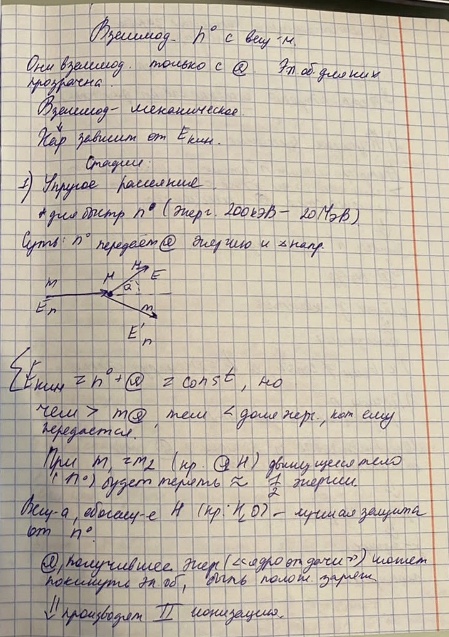 Взаимод. n° с вещ-м.
Они взаимод. только с (я) Эл. об. для них
прозрачна.
Взаимод- механическое
Хар зависит от Eкин.
Стадии:
1) Упругое рассеяние
* для быстр n° (энерг. 200кэВ – 20МэВ)
Суть: n° передаёт (я) энергию и напр.
M E
m H a
En m
E'n
Eкин = n° + (я) = const, но
чем > m(я), тем < доля энерг., кот ему
передастся.
При m1 = m2 (нр. (я) H) движущееся тело
(n°) будет терять ≈ 1/2 энергии
Вещ-а, обогащ-е H (нр: H2O) – лучшая защита
от n°.
(я), получившее энер («ядро отдачи») может
покинуть эл об, быть полож. заряж
⇓ производят II ионизацию.